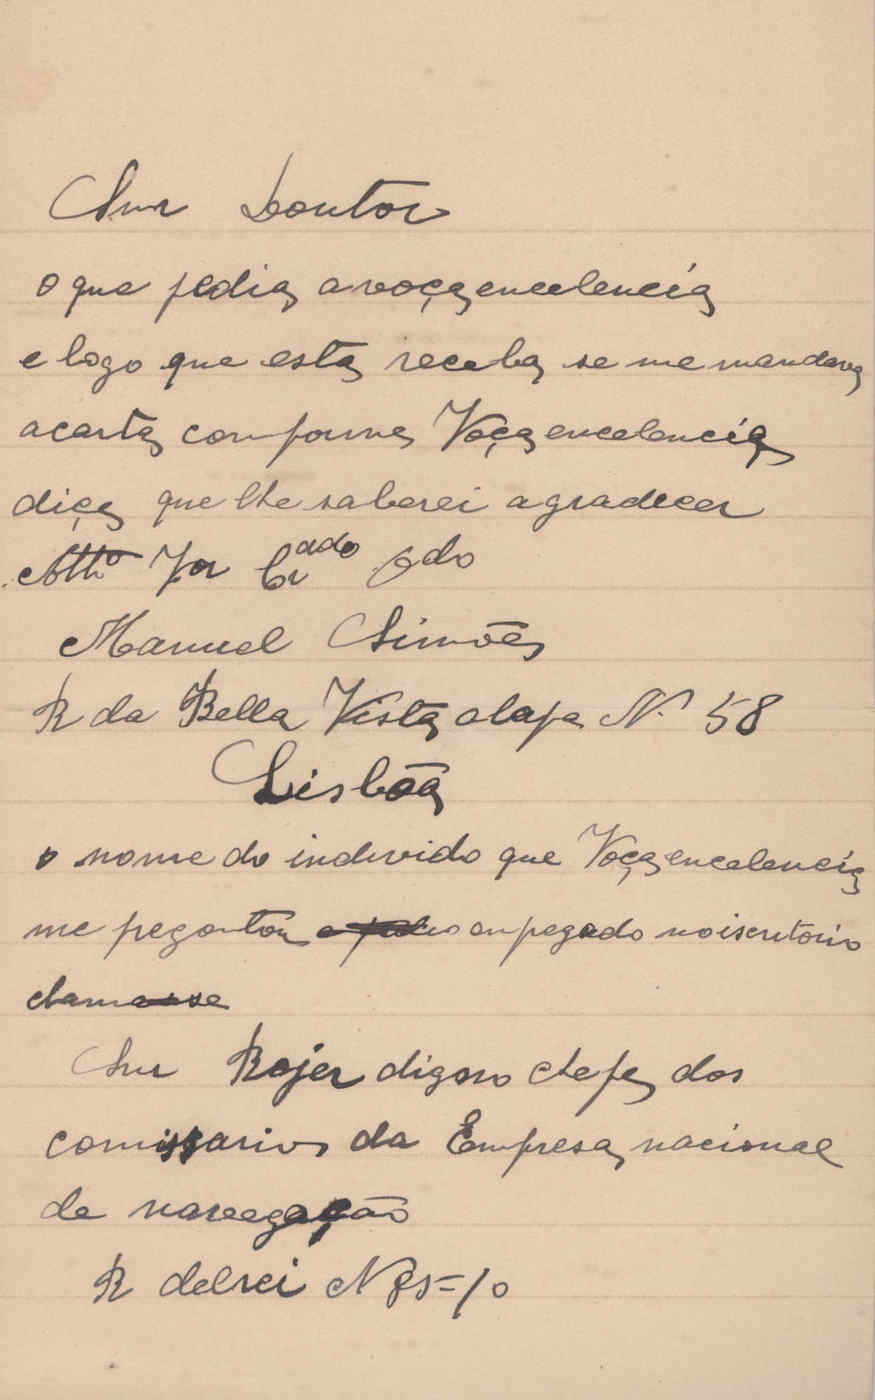 Snr Doutor
o que pedia a voça encelencia
e logo que esta receba se me mandava
a carta conforme Voça encelencia
dice que lhe saberei agradecer
Attº Vor Crado Odo
Manuel Simões
R da Bella Vista alapa N. 58
Lisbôa
o nome do individo que Voça encelencia
me pregontou enpegado no iscritorio
chamasse
Snr Rojer digno chefe dos
comissarios da Empresa nacional
de navegação
R delrei N 85=1o